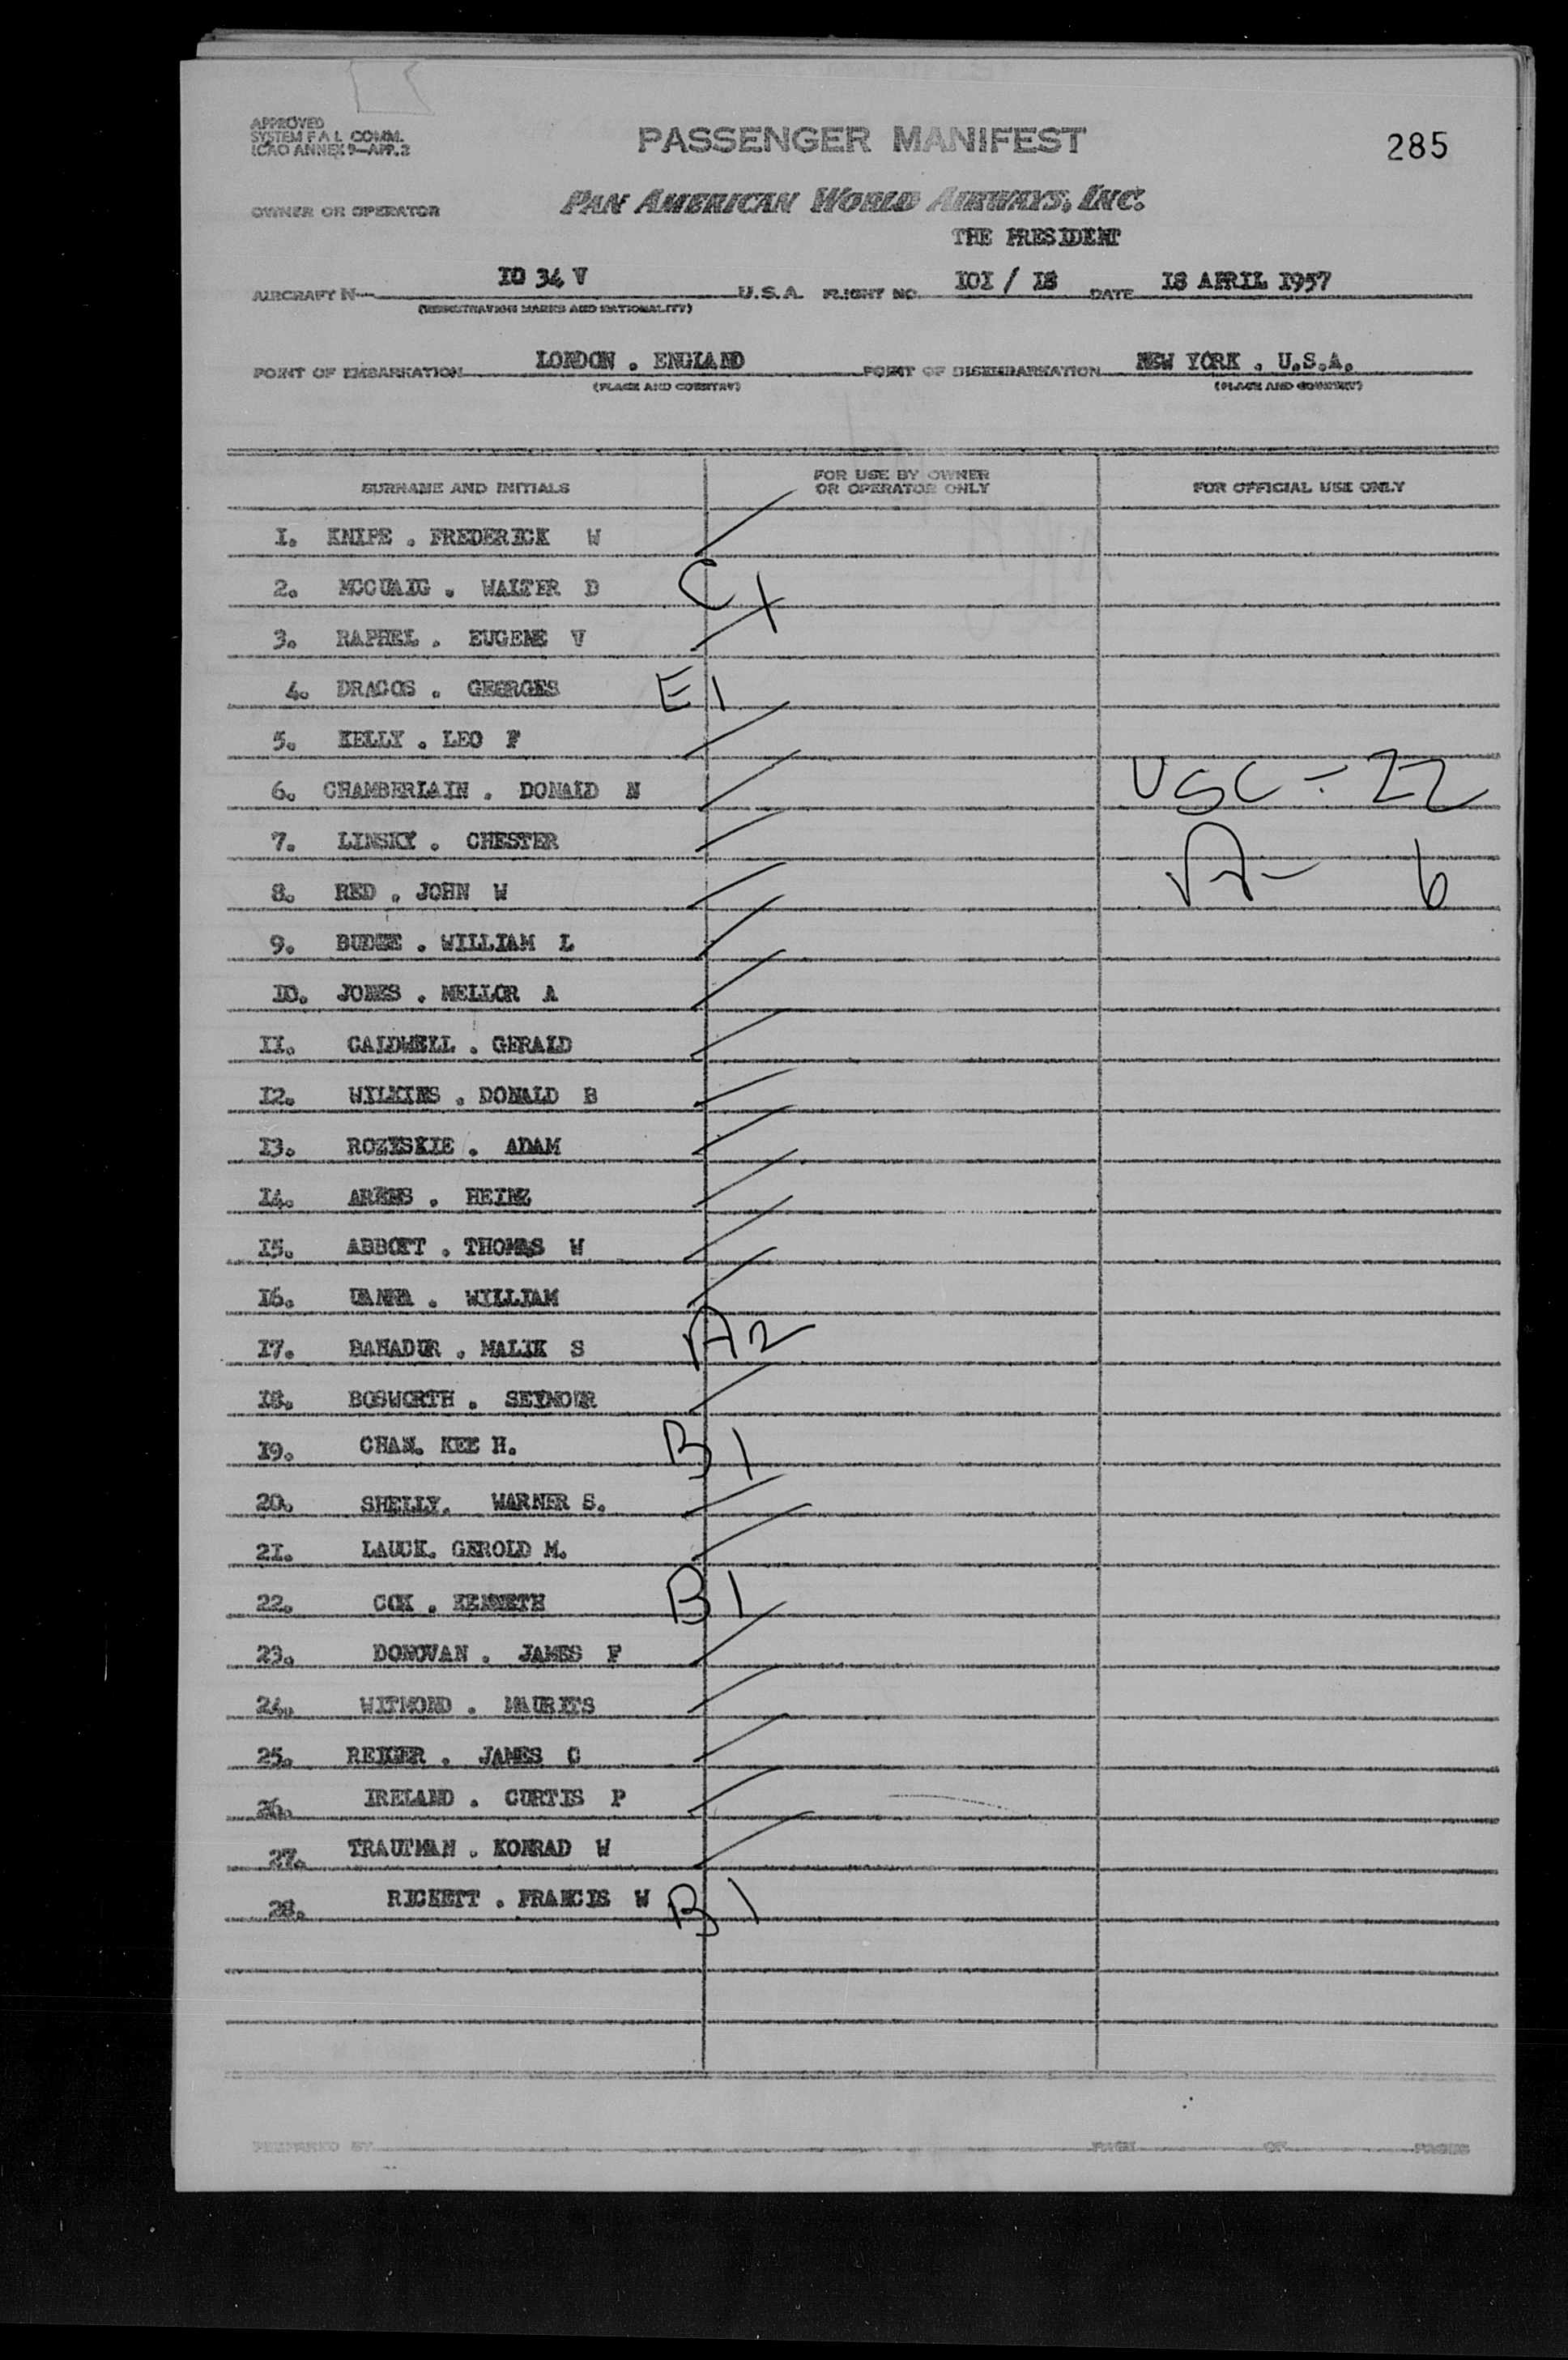 APPROVED
SYSTEM F A L COMM.
ICAO ANNEX 9—APP. 2
PASSENGER MANIFEST
285
OWNER OR OPERATOR
PAN AMERICAN WORLD AIRWAYS, INC.
THE PRESIDENT
AIRCRAFT N— IO 34 V U.S.A. FLIGHT NO. IOI / I8 DATE I8 APRIL I957
(REGISTRATION MARKS AND NATIONALITY)
POINT OF EMBARKATION LONDON . ENGLAND POINT OF DISEMBARKATION NEW YORK . U.S.A.
(PLACE AND COUNTRY) (PLACE AND COUNTRY)
SURNAME AND INITIALS FOR USE BY OWNER OR OPERATOR ONLY FOR OFFICIAL USE ONLY
I. KNIPE . FREDERICK W
2. MCCUAIG . WALTER D C 1
3. RAPHEL . EUGENE V
4. DRAGOS . GEORGES E 1
5. KELLY . LEO F
6. CHAMBERLAIN . DONALD N USC - 22
7. LINSKY . CHESTER A - 6
8. RED . JOHN W
9. WILLIAM L
IO. JONES . MELLOR A
II. CALDWELL . GERALD
I2. WILKINS . DONALD B
I3. ROZYSKIE . ADAM
I4. ARENS . HEINZ
I5. ABBOTT . THOMAS W
I6. WILLIAM
I7. BAHADUR . MALIK S A2
I8. BOSWORTH . SEYMOUR
I9. CHAN. KEE H. B 1
20. SHELLY. WARNER S.
2I. LAUCK. GEROLD M.
22. COX . KENNETH B 1
23. DONOVAN . JAMES F
24. WITMOND . MAURITS
25. REIGER . JAMES C
26. IRELAND . CURTIS P
27. TRAUTMAN . KONRAD W
28. RICKETT . FRANCIS W B 1
PREPARED BY PAGE OF PAGES